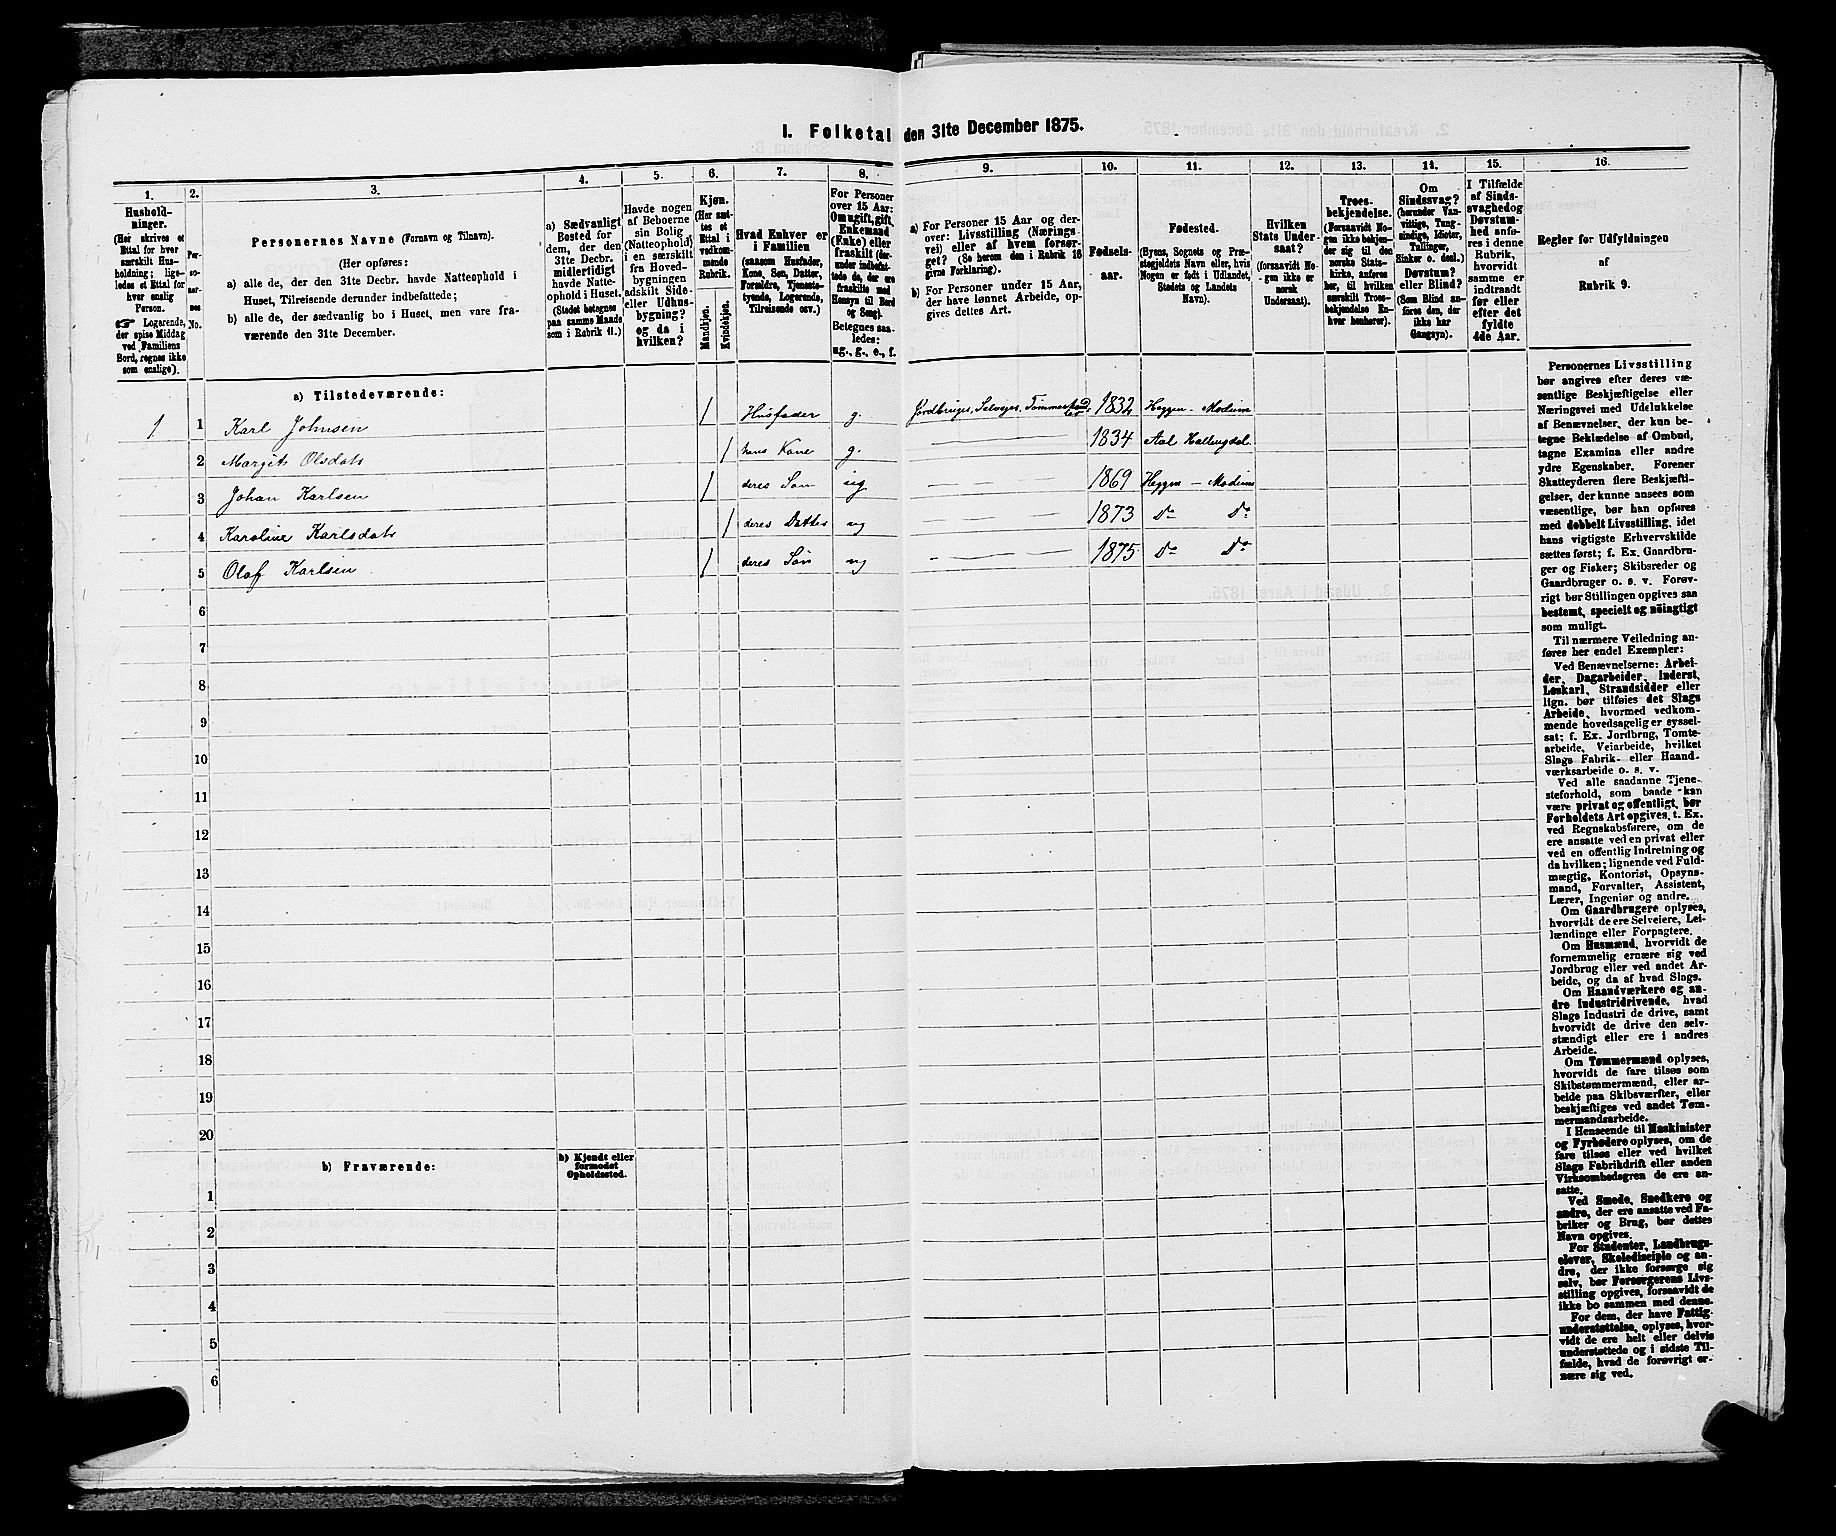 I. Folketal den 31te December 1875.
1.
Hushold-
ninger.
(Her skrives et
Ettal for hver
særskilt Hus-
holdning; lige-
ledes et Ettal for
hver enslig
Person.
☞ Logerende,
der spise Middag
ved Familiens
Bord, regnes ikke
som enslige).
2.
Per-
so-
ner-
nes
No.
3.
Personernes Navne (Fornavn og Tilnavn).
(Her opføres:
a) alle de, der den 31te Decbr. havde Natteophold i
Huset, Tilreisende derunder indbefattede;
b) alle de, der sædvanlig bo i Huset, men vare fra-
værende den 31te December.
4.
a) Sædvanligt
Bosted for
dem, der den
31te Decbr.
midlertidigt
havde Natte-
ophold i Huset.
(Stedet betegnes
paa samme Maade
som i Rubrik 11.)
5.
Havde nogen
af Beboerne
sin Bolig
(Natteophold)
i en særskilt
fra Hoved-
bygningen
adskilt Side-
eller Udhus-
bygning?
og da i
hvilken?
6.
Kjøn.
(Her sæt-
tes et
Ettal i
vedkom-
mende
Rubrik.
Mandkjøn.
Kvindekjøn.
7.
Hvad Enhver er
i Familien
(saasom Husfader,
Kone, Søn, Datter,
Forældre, Tjeneste-
tyende, Logerende,
Tilreisende osv.)
8.
For Personer
over 15 Aar:
Om ugift, gift,
Enkemand
(Enke) eller
fraskilt (der-
under indbefat-
tede de, der ere
fraskilte med
Hensyn til Bord
og Seng).
Betegnes saa-
ledes:
ug., g., e., f.
9.
a) For Personer 15 Aar og der-
over: Livsstilling (Nærings-
vei) eller af hvem forsør-
get? (Se herom den i Rubrik 16
givne Forklaring).
b) For Personer under 15 Aar,
der have lønnet Arbeide, op-
gives dettes Art.
10.
Fødsels-
aar.
11.
Fødested.
(Byens, Sognets og Præ-
stegjeldets Navn eller, hvis
Nogen er født i Udlandet,
Stedets og Landets
Navn).
12.
Hvilken
Stats Under-
saat?
(forsaavidt No-
gen ikke er
norsk
Undersaat).
13.
Troes-
bekjendelse.
(Forsaavidt No-
gen ikke bekjen-
der sig til den
norske Stats-
kirke, anføres
her, til hvilken
særskilt Troes-
bekjendelse En-
hver henhører).
14.
Om
Sindssvag?
(herunder Van-
vittige, Tung-
sindige, Idioter,
Tullinger,
Sinker o. desl.)
Døvstum?
eller Blind?
(Som Blind an-
føres den, der
ikke har
Gangsyn).
15.
I Tilfælde
af Sinds-
svaghed og
Døvstum-
hed anfø-
res i denne
Rubrik,
hvorvidt
samme er
indtraadt
før eller
efter det
fyldte
4de Aar.
16.
Regler for Udfyldningen
af
Rubrik 9.
a) Tilstedeværende:
1 1 Karl Johnsen 1 Husfader g. Jordbruger, Selveier, 1832 Heggen - Modum
2 Margit Olsdatr 1 hans Kone g. 1834 Aal Hallingdal.
3 Johan Karlsen 1 deres Søn ug 1869 Heggen - Modum
4 Karoline Karlsdatr 1 deres Datter ug 1873 Do Do
5 Olaf Karlsen 1 deres Søn ug 1875 Do Do
6
7
8
9
10
11
12
13
14
15
16
17
18
19
20
b) Fraværende:
b) Kjendt eller
formodet
Opholdssted.
1
2
3
4
5
6
Personernes Livsstilling
bør angives efter deres væ-
sentlige Beskjæftigelse eller
Næringsvei med Udelukkelse
af Benævnelser, der kun be-
tegne Beklædelse af Ombud,
tagne Examina eller andre
ydre Egenskaber. Forener
Skatteyderen flere Beskjæfti-
gelser, der kunne ansees som
væsentlige, bør han opføres
med dobbelt Livsstilling, idet
hans vigtigste Erhvervskilde
sættes først; f. Ex. Gaardbru-
ger og Fisker; Skibsreder og
Gaardbruger o. s. v. Forøv-
rigt bør Stillingen opgives saa
bestemt, specielt og nøiagtigt
som muligt.
Til nærmere Veiledning an-
føres her endel Exempler:
Ved Benævnelserne: Arbei-
der, Dagarbeider, Inderst,
Løskarl, Strandsidder eller
lign. bør tilføies det Slags
Arbeide, hvormed vedkom-
mende hovedsagelig er syssel-
sat; f. Ex. Jordbrug, Tomte-
arbeide, Veiarbeide, hvilket
Slags Fabrik- eller Haand-
værksarbeide o. s. v.
Ved alle saadanne Tjene-
steforhold, som baade kan
være privat og offentligt, bør
Forholdets Art opgives, t. Ex.
ved Regnskabsførere, om de
ere ansatte ved en privat eller
ved en offentlig Indretning og
da hvilken; lignende ved Fuld-
mægtig, Kontorist, Opsyns-
mand, Forvalter, Assistent,
Lærer, Ingeniør og andre.
Om Gaardbrugere oplyses,
hvorvidt de ere Selveiere, Lei-
lændinge eller Forpagtere.
Om Husmænd, hvorvidt de
fornemmelig ernære sig ved
Jordbrug eller ved andet Ar-
beide, og da af hvad Slags.
Om Haandværkere og an-
dre Industridrivende, hvad
Slags Industri de drive, samt
hvorvidt de drive den selv-
stændigt eller ere i andres
Arbeide.
Om Tømmermænd oplyses,
hvorvidt de fare tilsøs som
Skibstømmermænd, eller ar-
beide paa Skibsværfter, eller
beskjæftiges ved andet Tøm-
mermandsarbeide.
I Henseende til Maskinister
og Fyrbødere oplyses, om de
fare tilsøs eller ved hvilket
Slags Fabrikdrift eller anden
Virksomhedsgren de ere an-
satte.
Ved Smede, Snedkere og
andre, der ere ansatte ved Fa-
briker og Brug, bør dettes
Navn opgives.
For Studenter, Landbrugs-
elever, Skoledisciple og an-
dre, der ikke forsørge sig
selv, bør Forsørgerens Livs-
stilling opgives, forsaavidt de
ikke bo sammen med denne.
For dem, der have Fattig-
understøttelse, oplyses, hvor-
vidt de ere helt eller delvis
understøttede og i sidste Til-
fælde, hvad de forøvrigt er-
nære sig ved.